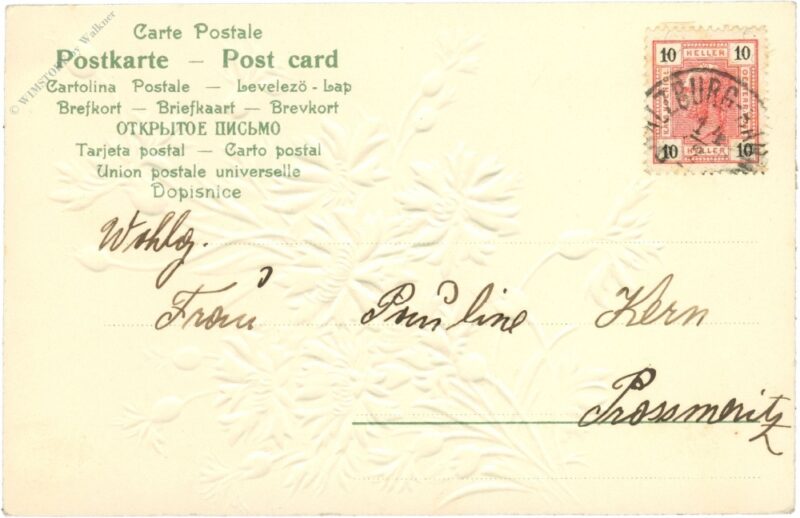 © WIMSTORE by Walkner
Carte Postale
Postkarte — Post card
Cartolina Postale — Levelező - Lap
Brefkort — Briefkaart — Brevkort
ОТКРЫТОЕ ПИСЬМО
Tarjeta postal — Carto postal
Union postale universelle
Dopisnice
10 KELLER 10
10 HELLER 10
Wohlg.
Frau Pauline Kern
Prossmeritz